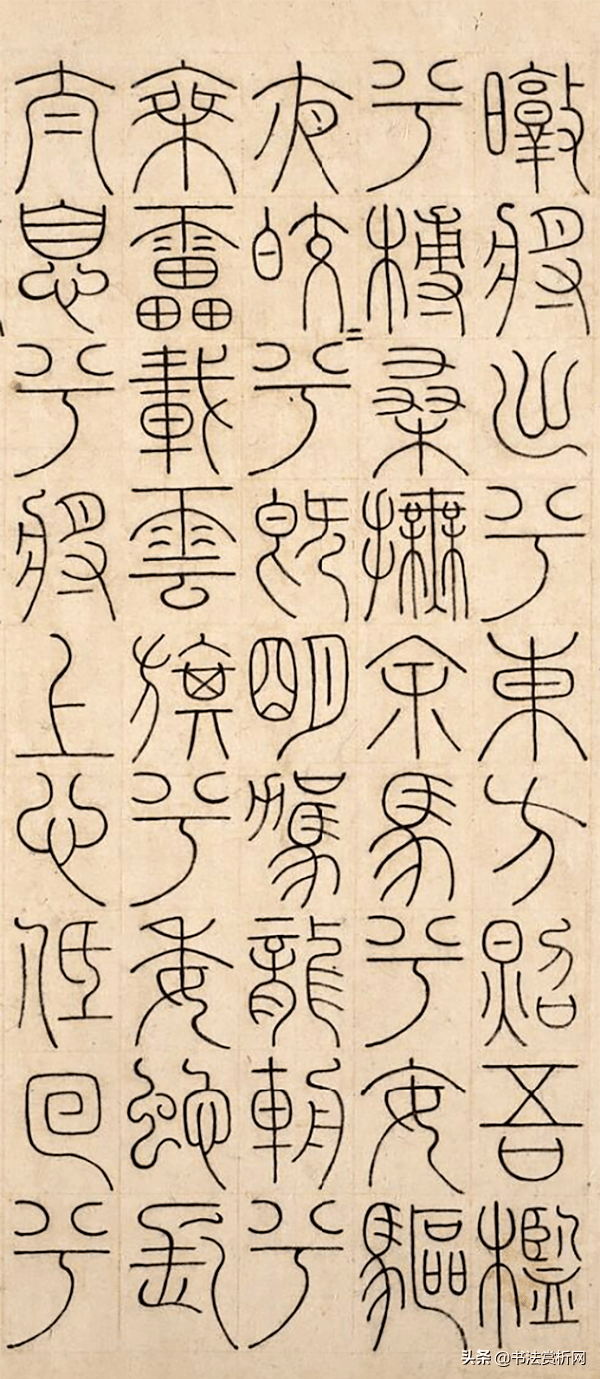 暾將出兮東方照吾檻
兮榑桑撫余馬兮安驅
夜皎〻兮既明駕龍輈兮
乘雷載雲旗兮委蛇長
太息兮將上心低回兮
头条 @书法赏析网